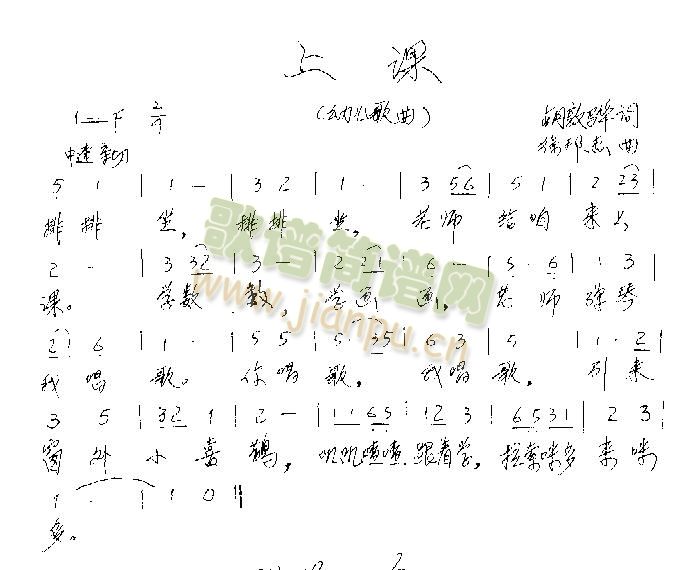 上 课
1=F 2/4
(幼儿歌曲)
胡敦骅 词
中速 亲切
徐邦杰 曲
5 1 | 1 - | 3 2 | 1 · | 3 56 | 5 1 | 2 23 |
排排 坐, 排排 坐, 老师 给咱 来上
2 - | 3 32 | 3 - | 2 21 | 6 - | 5 · 6 | 1 3 |
课。 学数 数, 学画 画, 老师 弹琴
2 6 | 1 · | 5 5 | 5 · 35 | 6 3 | 5 | 1 · 2 |
我唱 歌。 你唱 歌, 我唱 歌, 引来
3 5 | 32 1 | 2 - | 11 65 | 12 3 | 65 31 | 2 3 |
窗外 小喜 鹊, 叽叽喳喳 跟着学, 拉索咪多 来咪
1 · | 1 0 ||
多。
歌谱简谱网
www.jianpu.cn